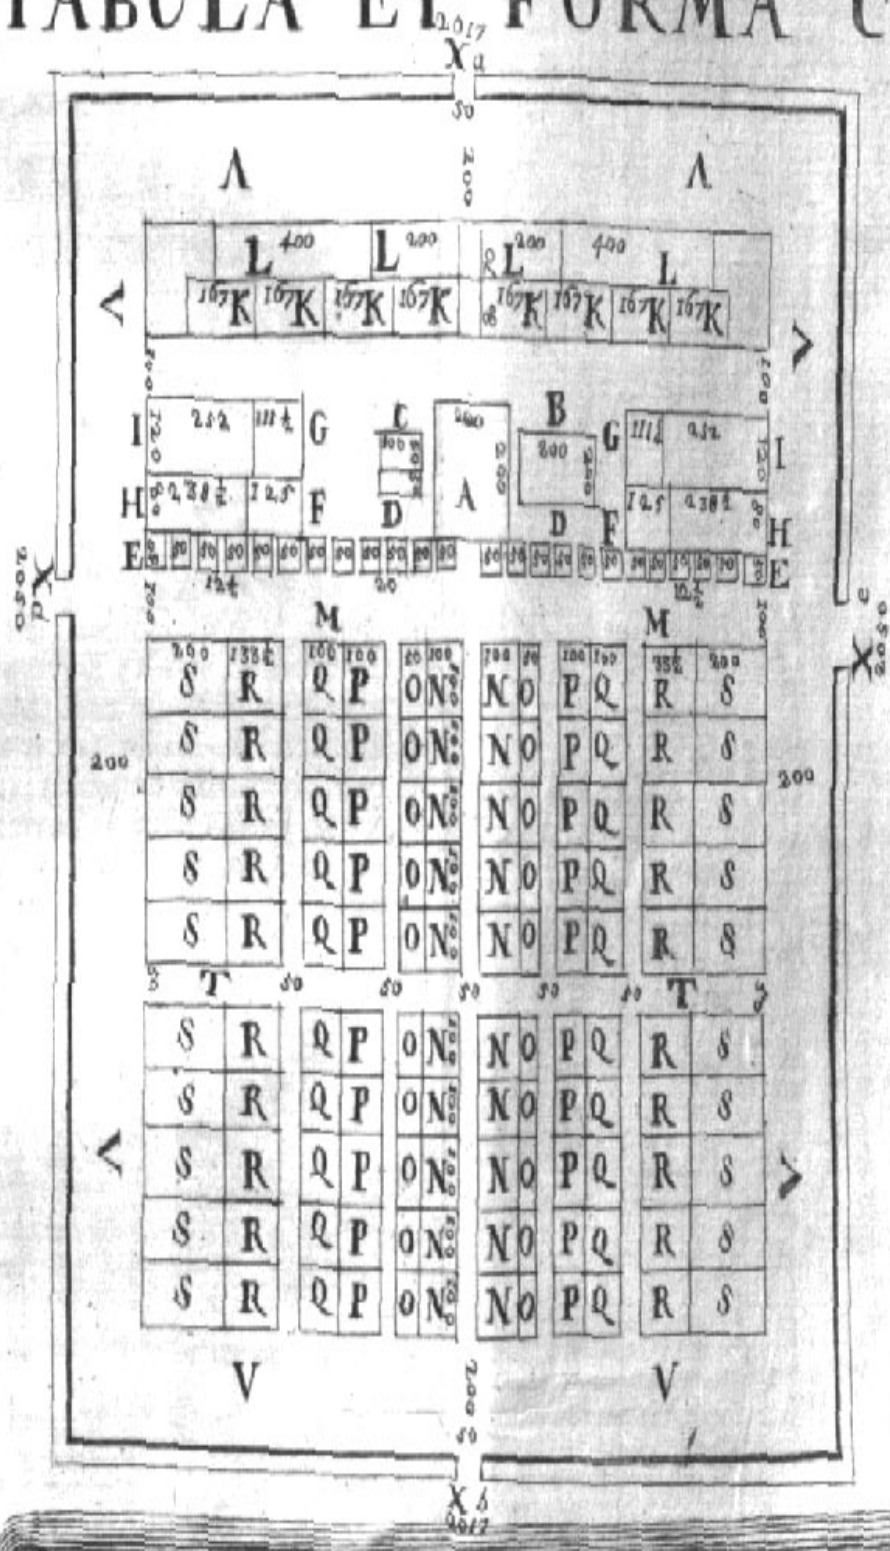 TABULA ET FORMA C
2017
X a
50
Λ 200 Λ
L 400 L 200 L 200 400 L
167 K 167 K 167 K 167 K 167 K 167 K 167 K 167 K
< >
100 100
I 120 252 111½ G C 200 B G 111½ 252 120 I
100 200 200
A
H 80 238½ 125 F D D F 125 238½ 80 H
E 50 50 50 50 50 50 50 50 50 50 50 50 50 50 50 50 50 50 50 50 50 E
12½ 20 12½
2050 X X 2050
100 M M 100
200 133½ 100 100 50 100 100 50 100 100 33½ 200
S R Q P O N N O P Q R S
S R Q P O N N O P Q R S
200 200
S R Q P O N N O P Q R S
S R Q P O N N O P Q R S
S R Q P O N N O P Q R S
T 50 50 50 50 50 T
S R Q P O N N O P Q R S
S R Q P O N N O P Q R S
S R Q P O N N O P Q R S
S R Q P O N N O P Q R S
S R Q P O N N O P Q R S
V 200 V
50
X b
2017